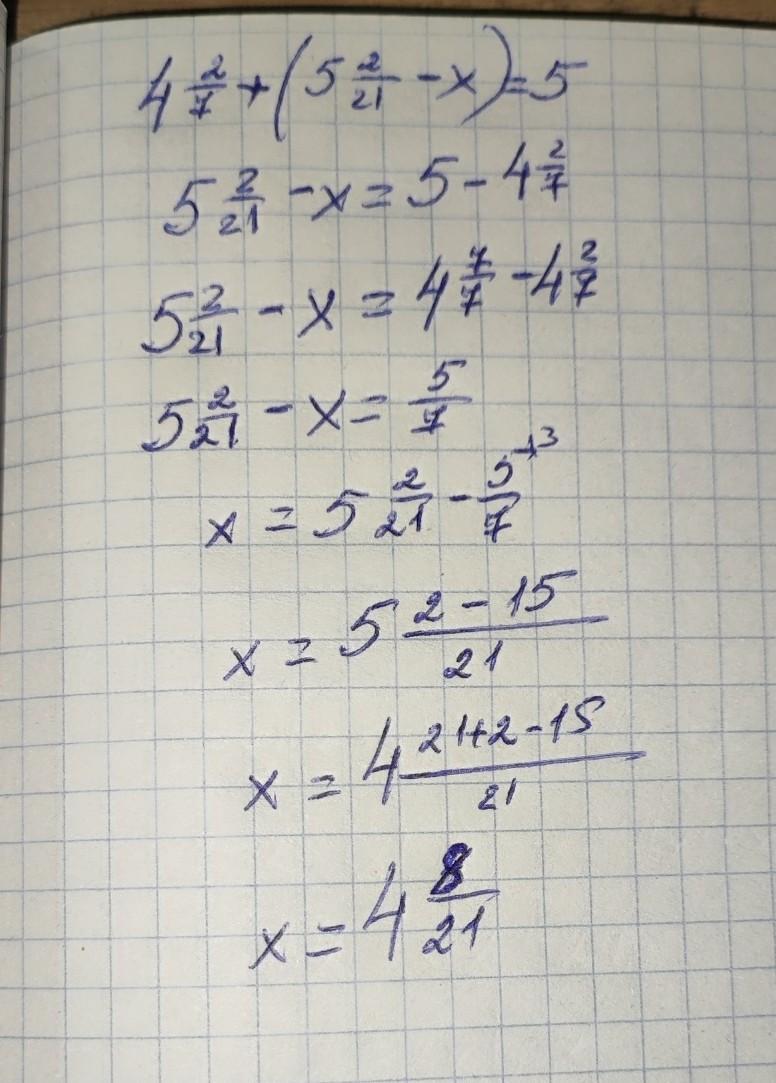 4 2/7 + (5 2/21 - x) = 5
5 2/21 - x = 5 - 4 2/7
5 2/21 - x = 4 7/7 - 4 2/7
5 2/21 - x = 5/7
x = 5 2/21 - 5/7 ×3
x = 5 (2 - 15)/21
x = 4 (21+2-15)/21
x = 4 8/21